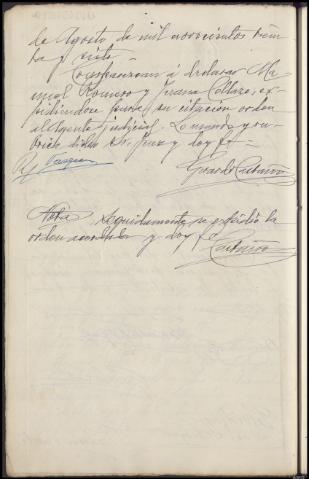 de Agosto de mil novecientos vein
te y siete.
Comparezcan á declarar Ma
nuel Romero y Juana Collazo, ex-
pidiéndose para su citación orden
al Agente judicial. Lo mandó y ru-
brica dicho Sr. Juez y doy fé.
Vazquez
Gerardo Castaño
Nota Seguidamente se expidió la
orden acordada y doy fé
Castaño